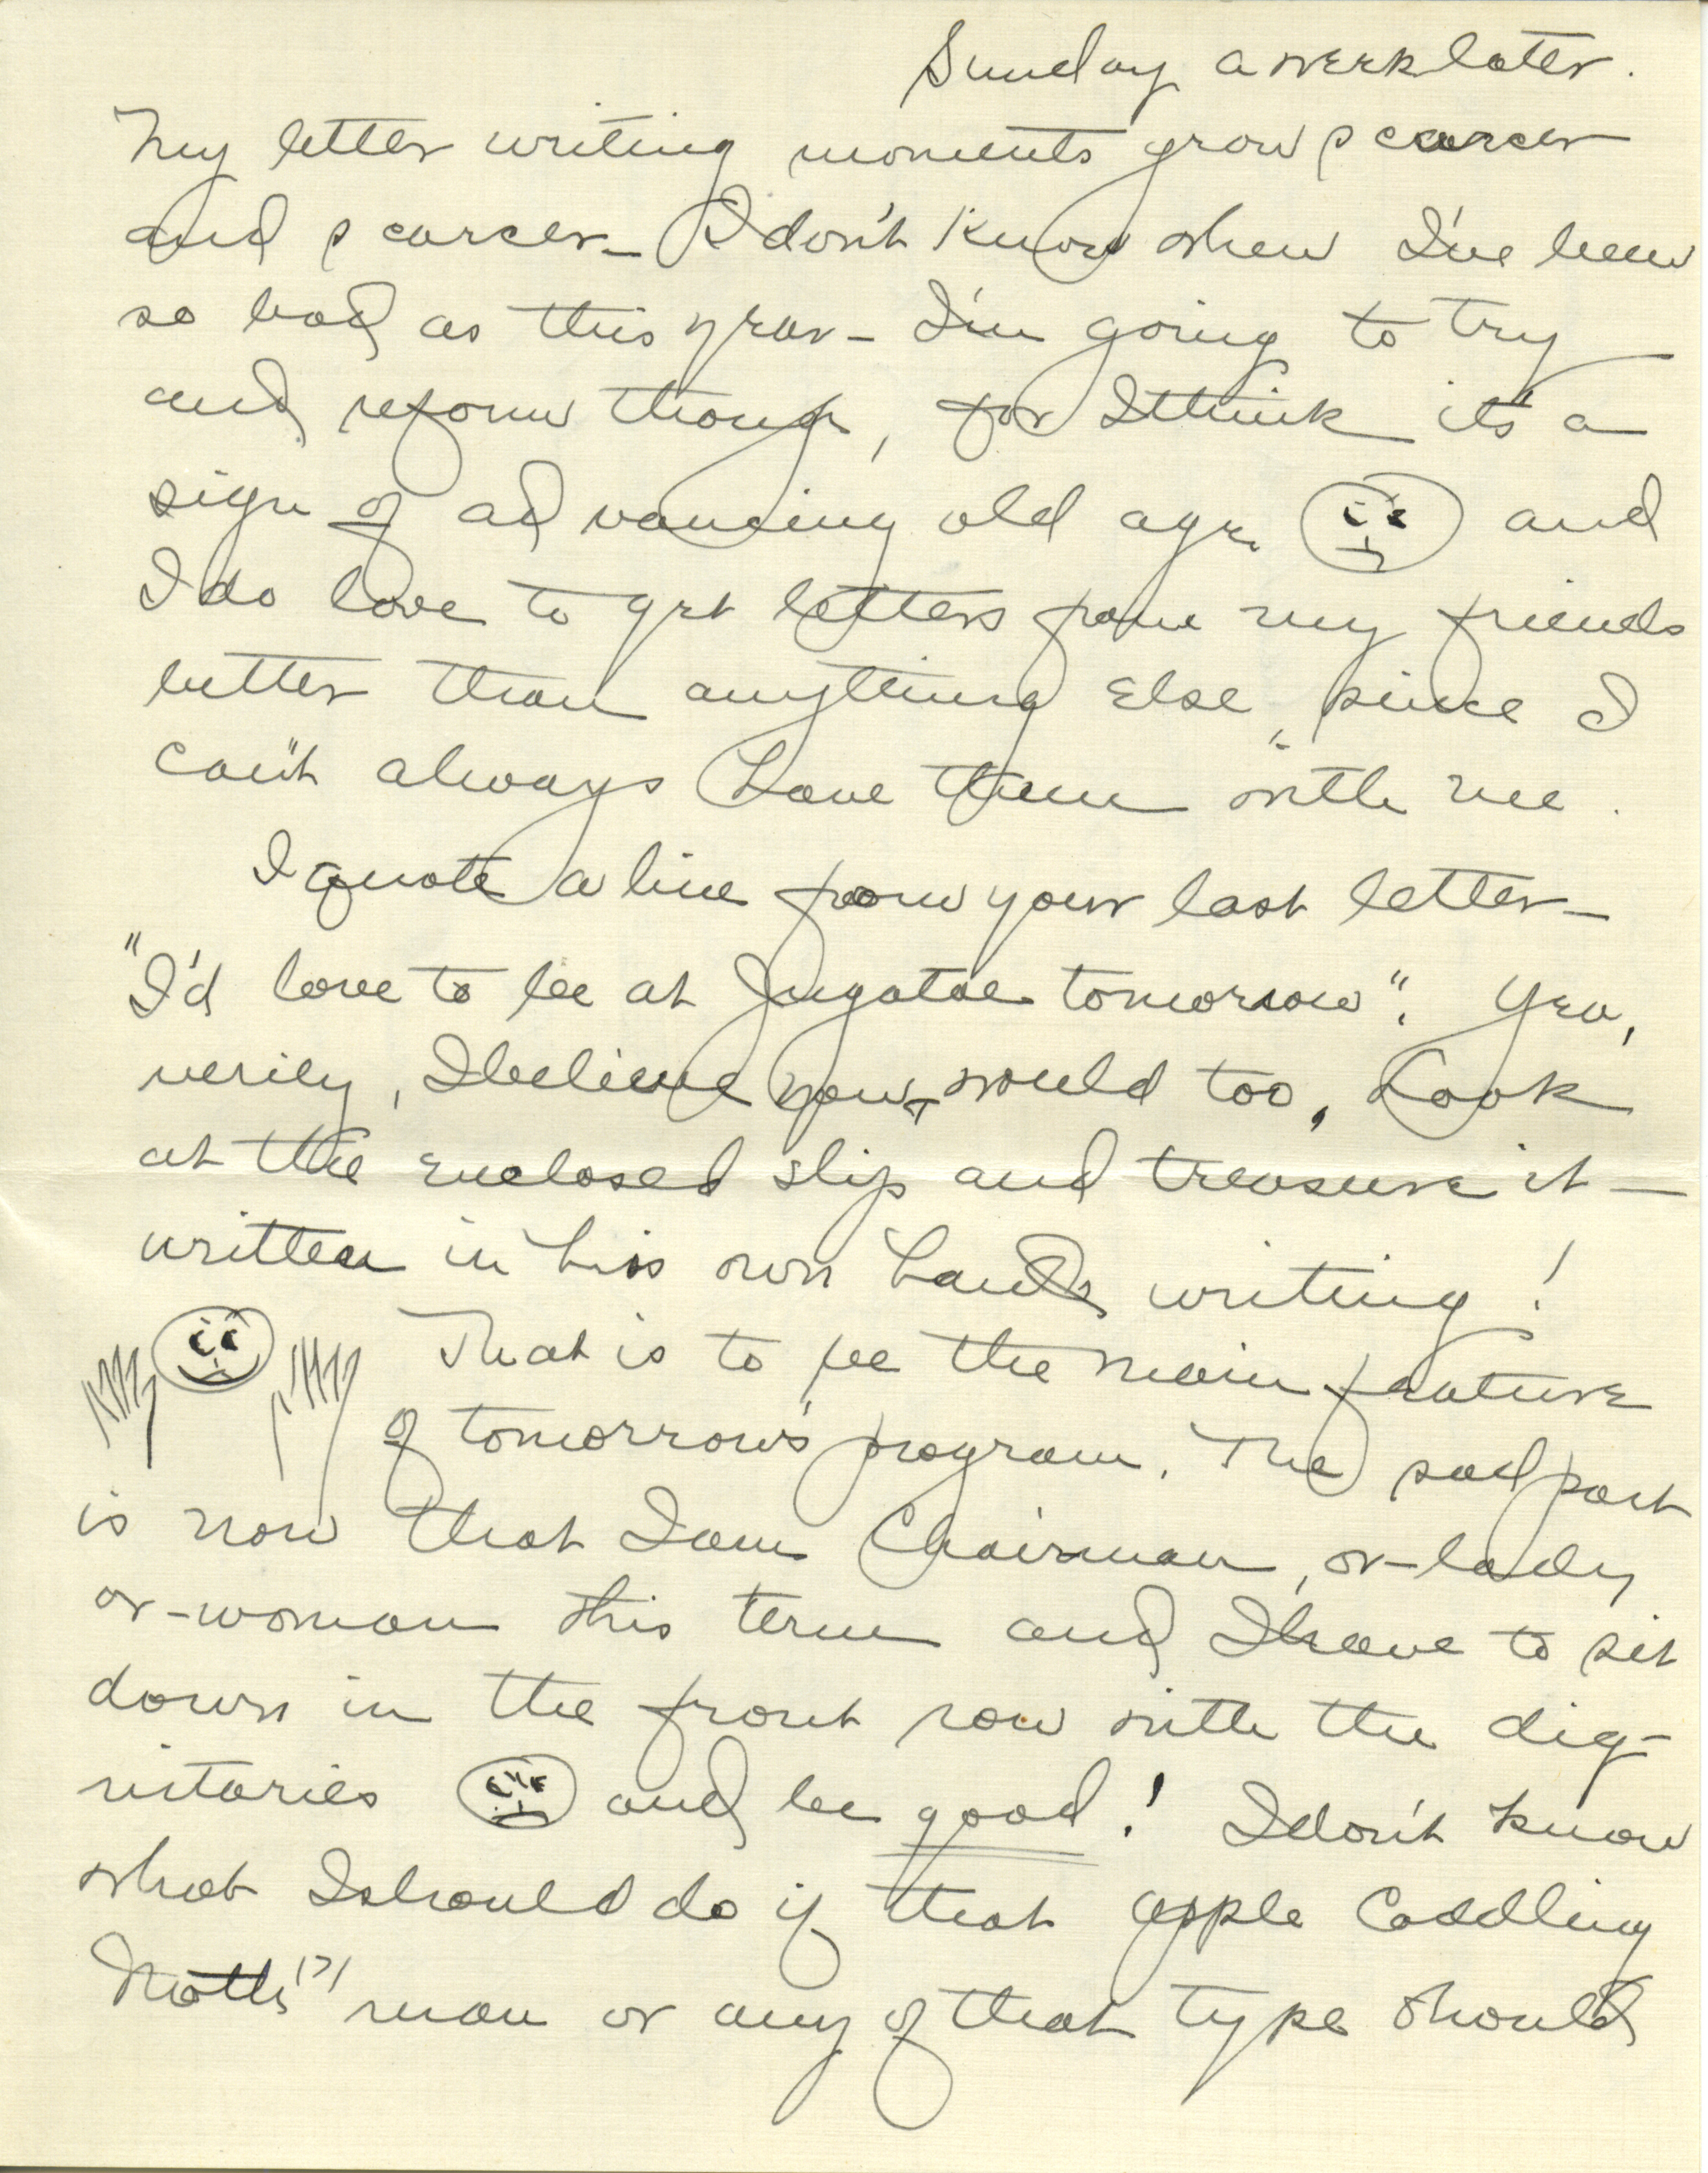 Sunday a week later.
My letter writing moments grow scarcer
and scarcer – I don't know when I've been
so bad as this year – I'm going to try
and reform though, for I think it's a
sign of advancing old age and
I do love to get letters from my friends
better than anything else, since I
can't always have them with me.
I quote a line from your last letter –
"I'd love to be at Jugatae tomorrow". Yea,
verily, I believe you would too. Look
at the enclosed slip and treasure it –
written in his own hand writing!
That is to be the main feature
of tomorrow's program. The sad part
is now that I am Chairman, or-lady
or-woman this term and I have to sit
down in the front row with the dig-
nitaries and be good! I don't know
what I should do if that apple Coddling
Moth (?) man or any of that type should